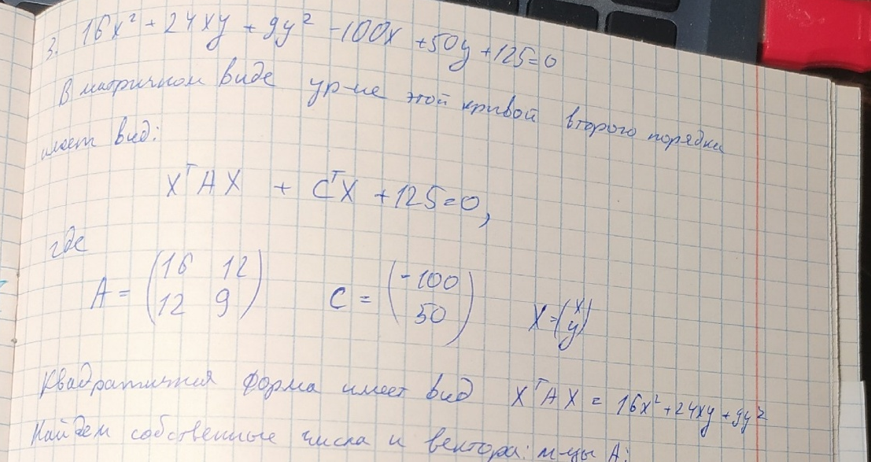 3. 16x² + 24xy + 9y² - 100x + 50y + 125 = 0
В матричном виде ур-ие этой кривой второго порядка
имеет вид:
XᵀAX + CᵀX + 125 = 0,
где
A = (16 12 12 9) C = (-100 50) X = (x y)
Квадратичная форма имеет вид XᵀAX = 16x² + 24xy + 9y²
Найдем собственные числа и вектора: м-цы A: